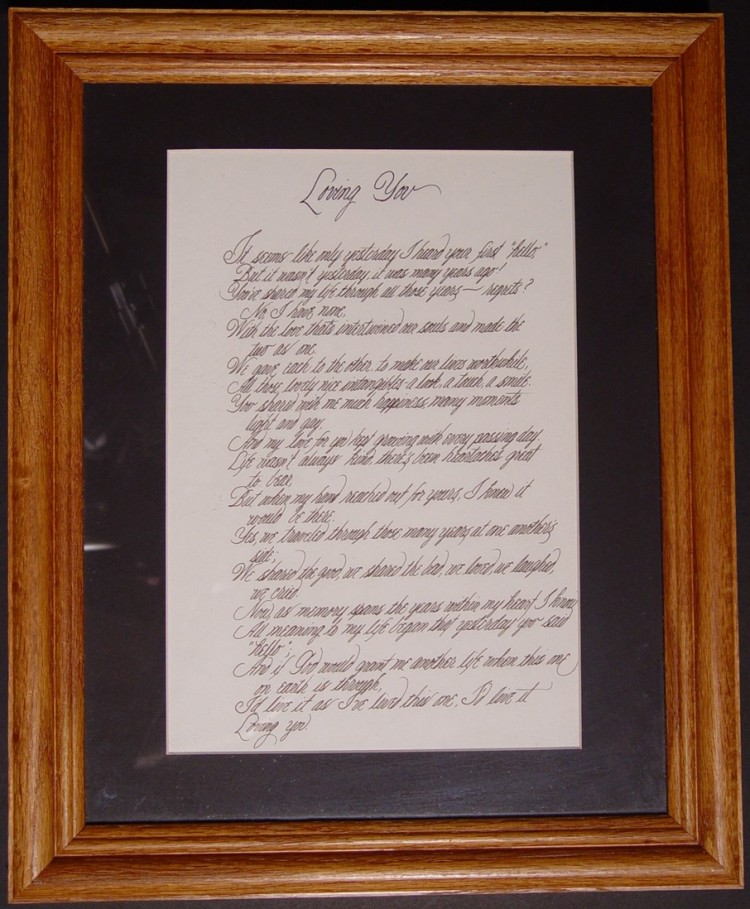 Loving You
It seems like only yesterday I heard your first "hello,"
But it wasn't yesterday, it was many years ago!
You've shared my life through all those years — regrets?
No, I have none,
With the love that's intertwined our souls and made the
two as one.
We gave each to the other to make our lives worthwhile,
All those lovely nice intangibles—a look, a touch, a smile.
You shared with me much happiness, many moments
light and gay,
And my love for you kept growing with every passing day.
Life wasn't always kind, there's been heartaches great
to bear,
But when my hand reached out for yours, I knew it
would be there.
Yes, we traveled through those many years at one another's
side;
We shared the good, we shared the bad, we loved, we laughed,
we cried.
Now, as memory spans the years within my heart I know
All meaning to my life began that yesterday you said
"hello";
And if God would grant me another life when this one
on earth is through,
I'd live it as I've lived this one, I'd love it
Loving you.